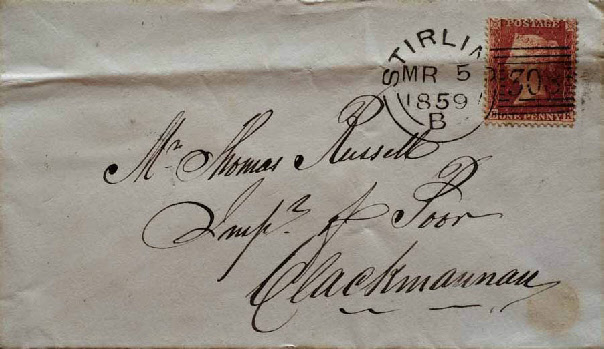 POSTAGE
STIRLIN
MR 5
1859
B
308
ONE PENNY
Mr Thomas Russell
Inspr of Poor
Clackmannan